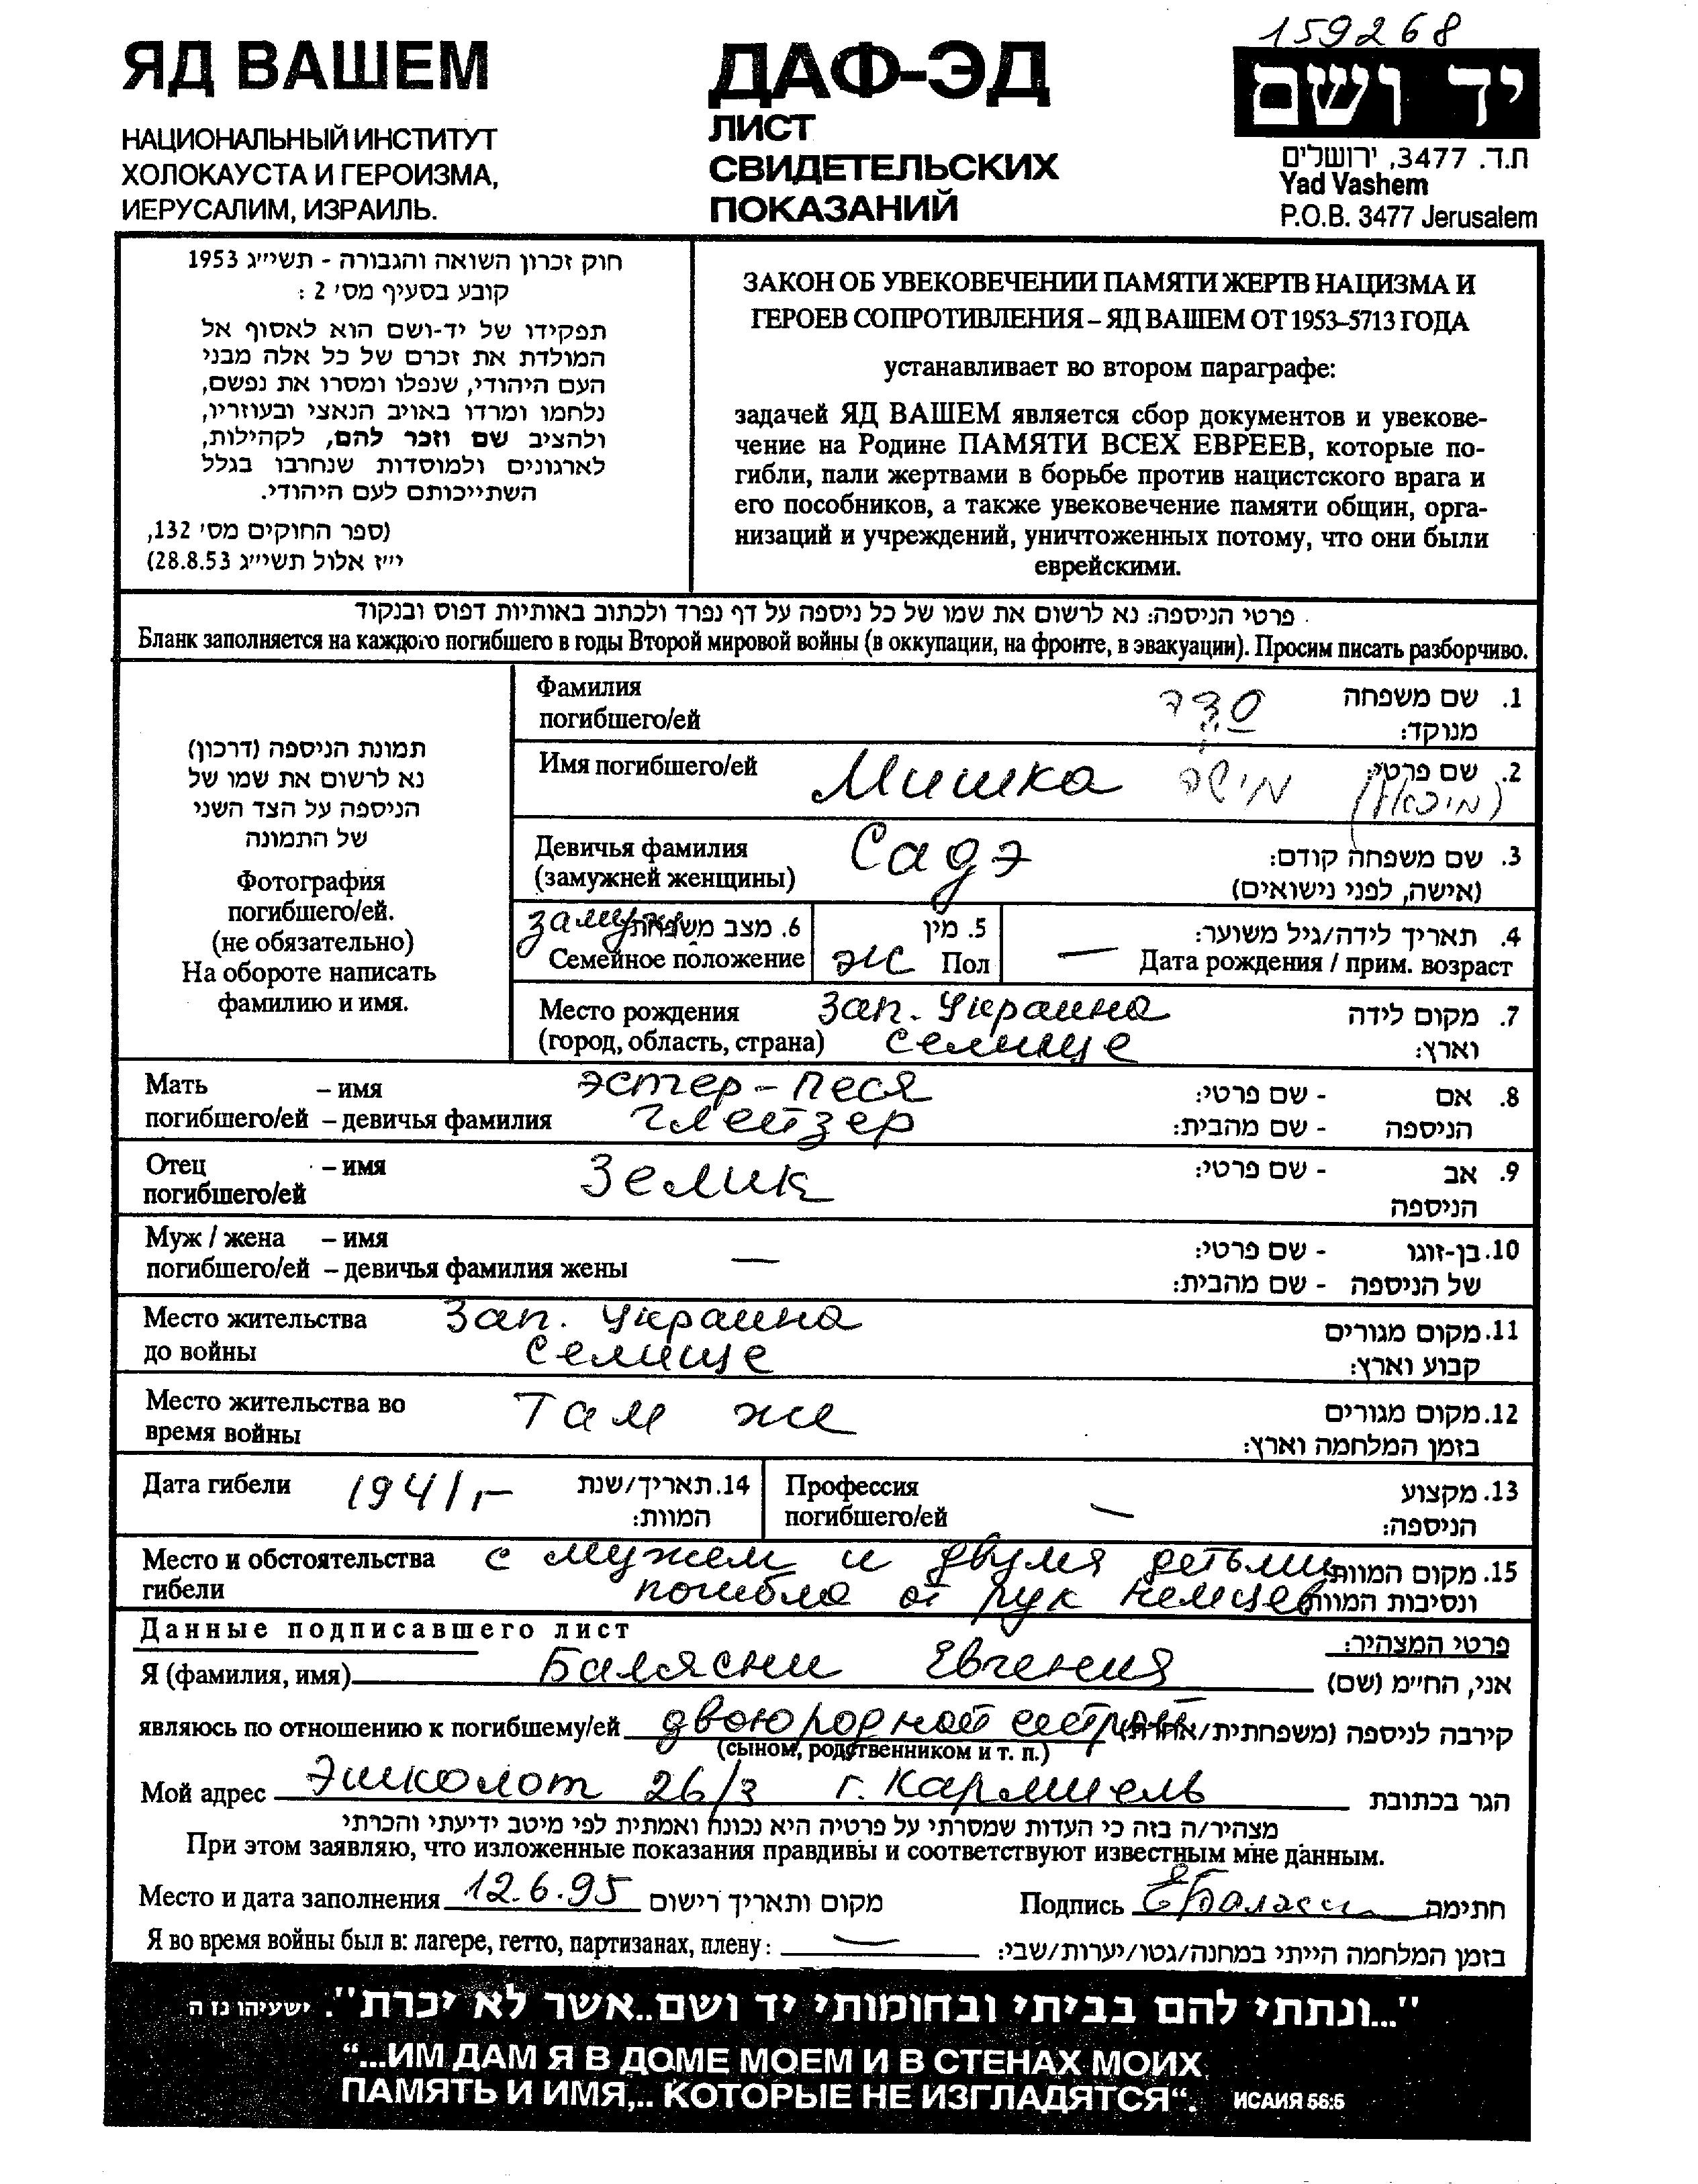 159268
ЯД ВАШЕМ
НАЦИОНАЛЬНЫЙ ИНСТИТУТ
ХОЛОКАУСТА И ГЕРОИЗМА,
ИЕРУСАЛИМ, ИЗРАИЛЬ.
ДАФ-ЭД
ЛИСТ
СВИДЕТЕЛЬСКИХ
ПОКАЗАНИЙ
יד ושם
ת.ד. 3477, ירושלים
Yad Vashem
P.O.B. 3477 Jerusalem
חוק זכרון השואה והגבורה - תשי״ג 1953
קובע בסעיף מס׳ 2 :
תפקידו של יד-ושם הוא לאסוף אל
המולדת את זכרם של כל אלה מבני
העם היהודי, שנפלו ומסרו את נפשם,
נלחמו ומרדו באויב הנאצי ובעוזריו,
ולהציב שם וזכר להם, לקהילות,
לארגונים ולמוסדות שנחרבו בגלל
השתייכותם לעם היהודי.
(ספר החוקים מס׳ 132,
י״ז אלול תשי״ג 28.8.53)
ЗАКОН ОБ УВЕКОВЕЧЕНИИ ПАМЯТИ ЖЕРТВ НАЦИЗМА И
ГЕРОЕВ СОПРОТИВЛЕНИЯ – ЯД ВАШЕМ ОТ 1953–5713 ГОДА
устанавливает во втором параграфе:
задачей ЯД ВАШЕМ является сбор документов и увекове-
чение на Родине ПАМЯТИ ВСЕХ ЕВРЕЕВ, которые по-
гибли, пали жертвами в борьбе против нацистского врага и
его пособников, а также увековечение памяти общин, орга-
низаций и учреждений, уничтоженных потому, что они были
еврейскими.
פרטי הניספה: נא לרשום את שמו של כל ניספה על דף נפרד ולכתוב באותיות דפוס ובנקוד
Бланк заполняется на каждого погибшего в годы Второй мировой войны (в оккупации, на фронте, в эвакуации). Просим писать разборчиво.
תמונת הניספה (דרכון)
נא לרשום את שמו של
הניספה על הצד השני
של התמונה
Фотография
погибшего/ей.
(не обязательно)
На обороте написать
фамилию и имя.
Фамилия
погибшего/ей
1. שם משפחה
מנוקד:
Имя погибшего/ей Мишка מישה (מיכאלה) 2. שם פרטי:
Девичья фамилия
(замужней женщины) Садэ
3. שם משפחה קודם:
(אישה, לפני נישואים)
замужем 6. מצב משפחתי
Семейное положение
5. מין
Пол ж
4. תאריך לידה/גיל משוער:
Дата рождения / прим. возраст —
Место рождения Зап. Украина 7. מקום לידה
(город, область, страна) селище וארץ:
Мать – имя Эстер-Песя 8. אם - שם פרטי:
погибшего/ей – девичья фамилия Глейзер הניספה - שם מהבית:
Отец – имя Зелик 9. אב - שם פרטי:
погибшего/ей הניספה
Муж / жена – имя 10. בן-זוגו - שם פרטי:
погибшего/ей – девичья фамилия жены — של הניספה - שם מהבית:
Место жительства Зап. Украина 11. מקום מגורים
до войны селище קבוע וארץ:
Место жительства во Там же 12. מקום מגורים
время войны בזמן המלחמה וארץ:
Дата гибели 1941 г 14. תאריך/שנת
המוות:
Профессия — 13. מקצוע
погибшего/ей הניספה:
Место и обстоятельства с мужем и двумя детьми 15. מקום המוות
гибели погибла от рук немцев ונסיבות המוות
Данные подписавшего лист פרטי המצהיר:
Я (фамилия, имя) Балясни Евгения אני, הח״מ (שם)
являюсь по отношению к погибшему/ей двоюродной сестрой קירבה לניספה (משפחתית/אחרת)
(сыном, родственником и т. п.)
Мой адрес Эшколот 26/3 г. Кармиель הגר בכתובת
מצהיר/ה בזה כי העדות שמסרתי על פרטיה היא נכונה ואמתית לפי מיטב ידיעתי והכרתי
При этом заявляю, что изложенные показания правдивы и соответствуют известным мне данным.
Место и дата заполнения 12.6.95 מקום ותאריך רישום Подпись ЕБалясни חתימה
Я во время войны был в: лагере, гетто, партизанах, плену: — בזמן המלחמה הייתי במחנה/גטו/יערות/שבי:
"...ונתתי להם בביתי ובחומותי יד ושם..אשר לא יכרת". ישעיהו נו ה
“...ИМ ДАМ Я В ДОМЕ МОЕМ И В СТЕНАХ МОИХ
ПАМЯТЬ И ИМЯ,.. КОТОРЫЕ НЕ ИЗГЛАДЯТСЯ“. ИСАИЯ 56:5